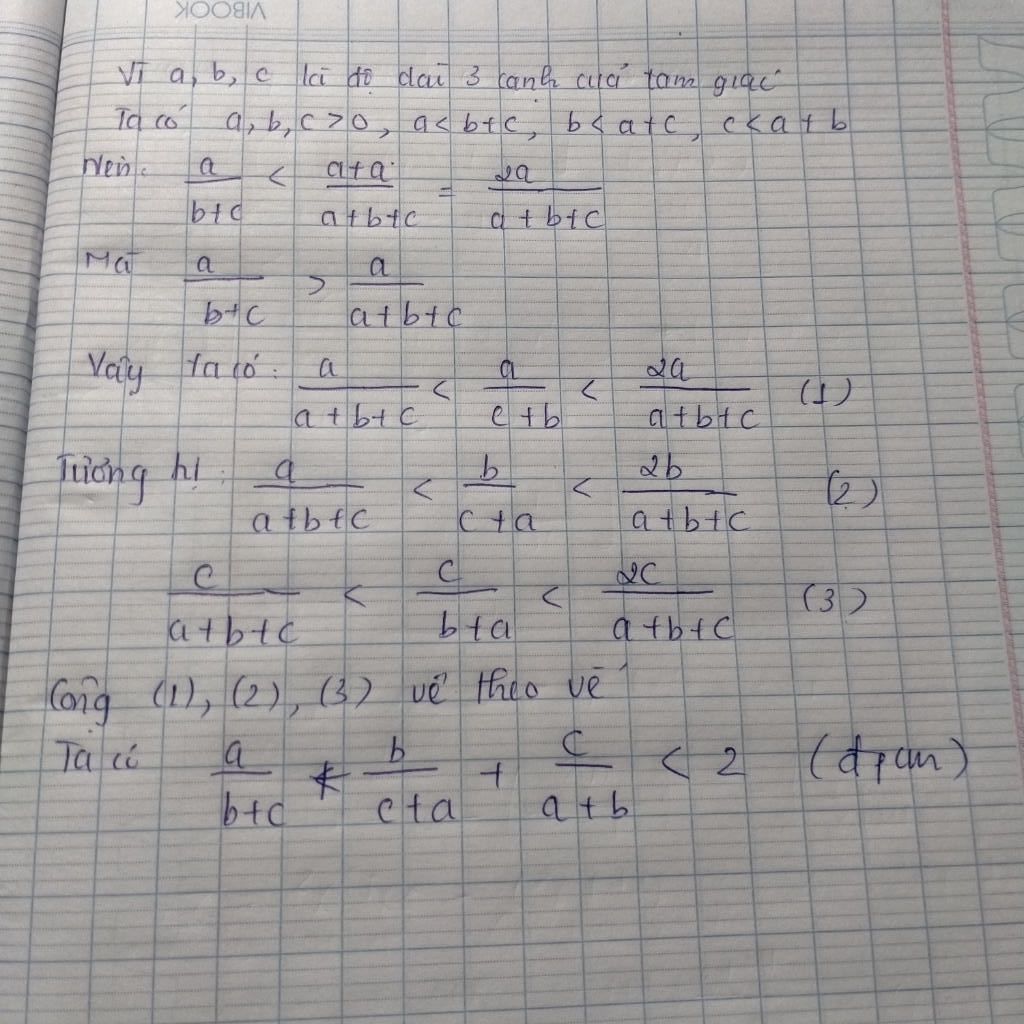 VIBOOK
Vì a, b, c là độ dài 3 cạnh của tam giác
Ta có a, b, c > 0, a < b+c, b < a+c, c < a+b
Nên: a/(b+c) < (a+a)/(a+b+c) = 2a/(a+b+c)
Mà a/(b+c) > a/(a+b+c)
Vậy ta có: a/(a+b+c) < a/(c+b) < 2a/(a+b+c) (1)
Tương tự: a/(a+b+c) < b/(c+a) < 2b/(a+b+c) (2)
c/(a+b+c) < c/(b+a) < 2c/(a+b+c) (3)
Cộng (1), (2), (3) vế theo vế
Ta có a/(b+c) + b/(c+a) + c/(a+b) < 2 (đpcm)